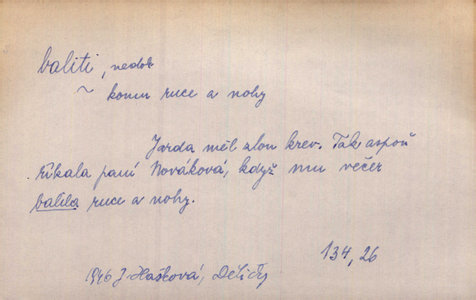 baliti, nedok
~ komu ruce a nohy
Jarda měl zlou krev. Tak aspoň
říkala paní Nováková, když mu večer
balila ruce a nohy.
134, 26
1946 J. Hašková, Dětičky